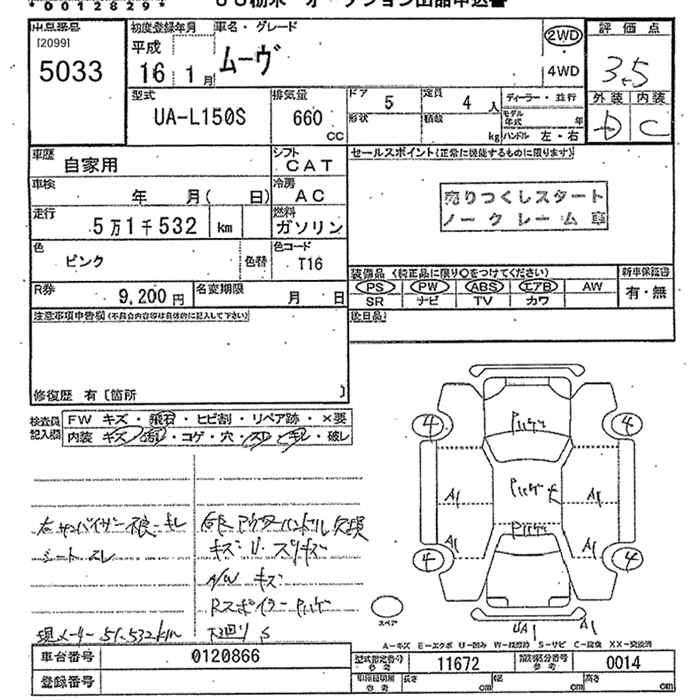 *00128293*
USS栃木 オークション出品申込書
出品番号 初度登録年月 車名・グレード 2WD 評価点
[2099] 平成
5033 16 1月 ムーヴ 4WD 3.5
型式 排気量 ドア 5 定員 4人 ディーラー・並行 外装 内装
UA-L150S 660 CC 形状 積載 kg モデル年式 年 D C
ハンドル 左・右
車歴 自家用 シフト CAT セールスポイント(正常に機能するものに限ります)
車検 年 月( 日) 冷房 AC
売りつくしスタート
ノークレーム車
走行 5万1千532 km 燃料 ガソリン
色 ピンク 色替 色コード T16
装備品 (純正品に限り○をつけてください) 新車保証書
R券 9,200円 名変期限 月 日 PS PW ABS エアB AW 有・無
SR ナビ TV カワ
注意事項申告欄(不具合内容等は具体的に記入して下さい) 後日品
修復歴 有〔箇所 〕
検査員記入欄 FW キズ・飛石・ヒビ割・リペア跡・×要
内装 キズ・汚れ・コゲ・穴・スレ・キレ・破レ
4 4
A1 A1
A1 A1
4 4
シート スレ キズ U スリキズ
A/W キズ
Rスポイラー
現メーター 51,532km 下廻り S
スペア
UA1 A1
A-キズ E-エクボ U-凹み W-板修跡 S-サビ C-腐食 XX-交換済
車台番号 0120866 型式指定番号 参考 11672 類別区分番号 参考 0014
登録番号 車両諸明細 参考 長さ cm 幅 cm 高さ cm